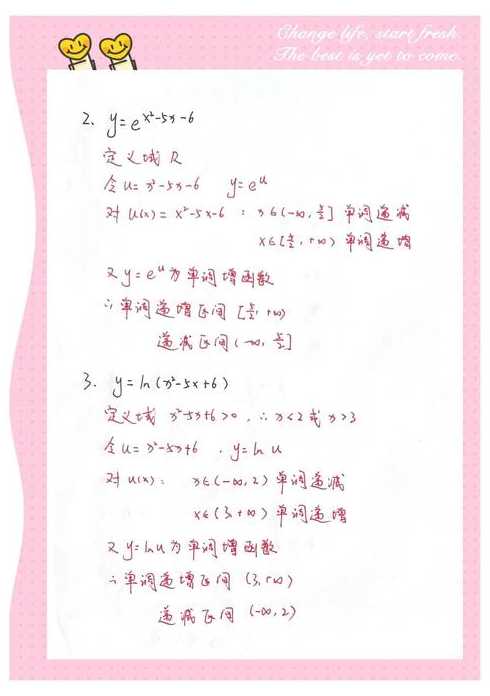 Change life, start fresh.
The best is yet to come.
2、 y=e^{x²-5x-6}
定义域 R
令 u=x²-5x-6 y=e^u
对 u(x)=x²-5x-6 : x∈(-∞, 5/2] 单调递减
x∈[5/2, +∞) 单调递增
又 y=e^u 为单调增函数
∴ 单调递增区间 [5/2, +∞)
递减区间 (-∞, 5/2]
3、 y=ln(x²-5x+6)
定义域 x²-5x+6>0 , ∴ x<2 或 x>3
令 u=x²-5x+6 , y=ln u
对 u(x): x∈(-∞, 2) 单调递减
x∈(3, +∞) 单调递增
又 y=ln u 为单调增函数
∴ 单调递增区间 (3, +∞)
递减区间 (-∞, 2)